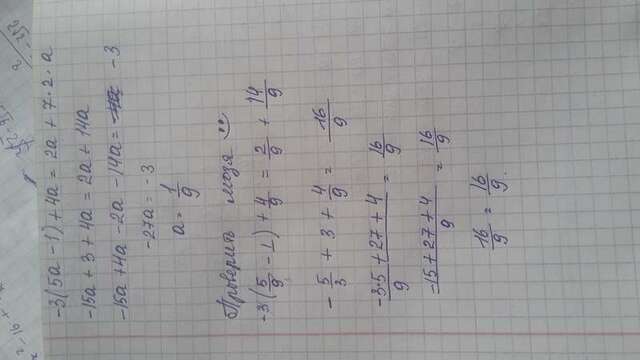 -3(5a - 1) + 4a = 2a + 7·2·a
-15a + 3 + 4a = 2a + 14a
-15a + 4a - 2a - 14a = -3
-27a = -3
a = 1/9
-3(5/9 - 1) + 4/9 = 2/9 + 14/9
-5/3 + 3 + 4/9 = 16/9
(-3·5 + 27 + 4)/9 = 16/9
(-15 + 27 + 4)/9 = 16/9
16/9 = 16/9.